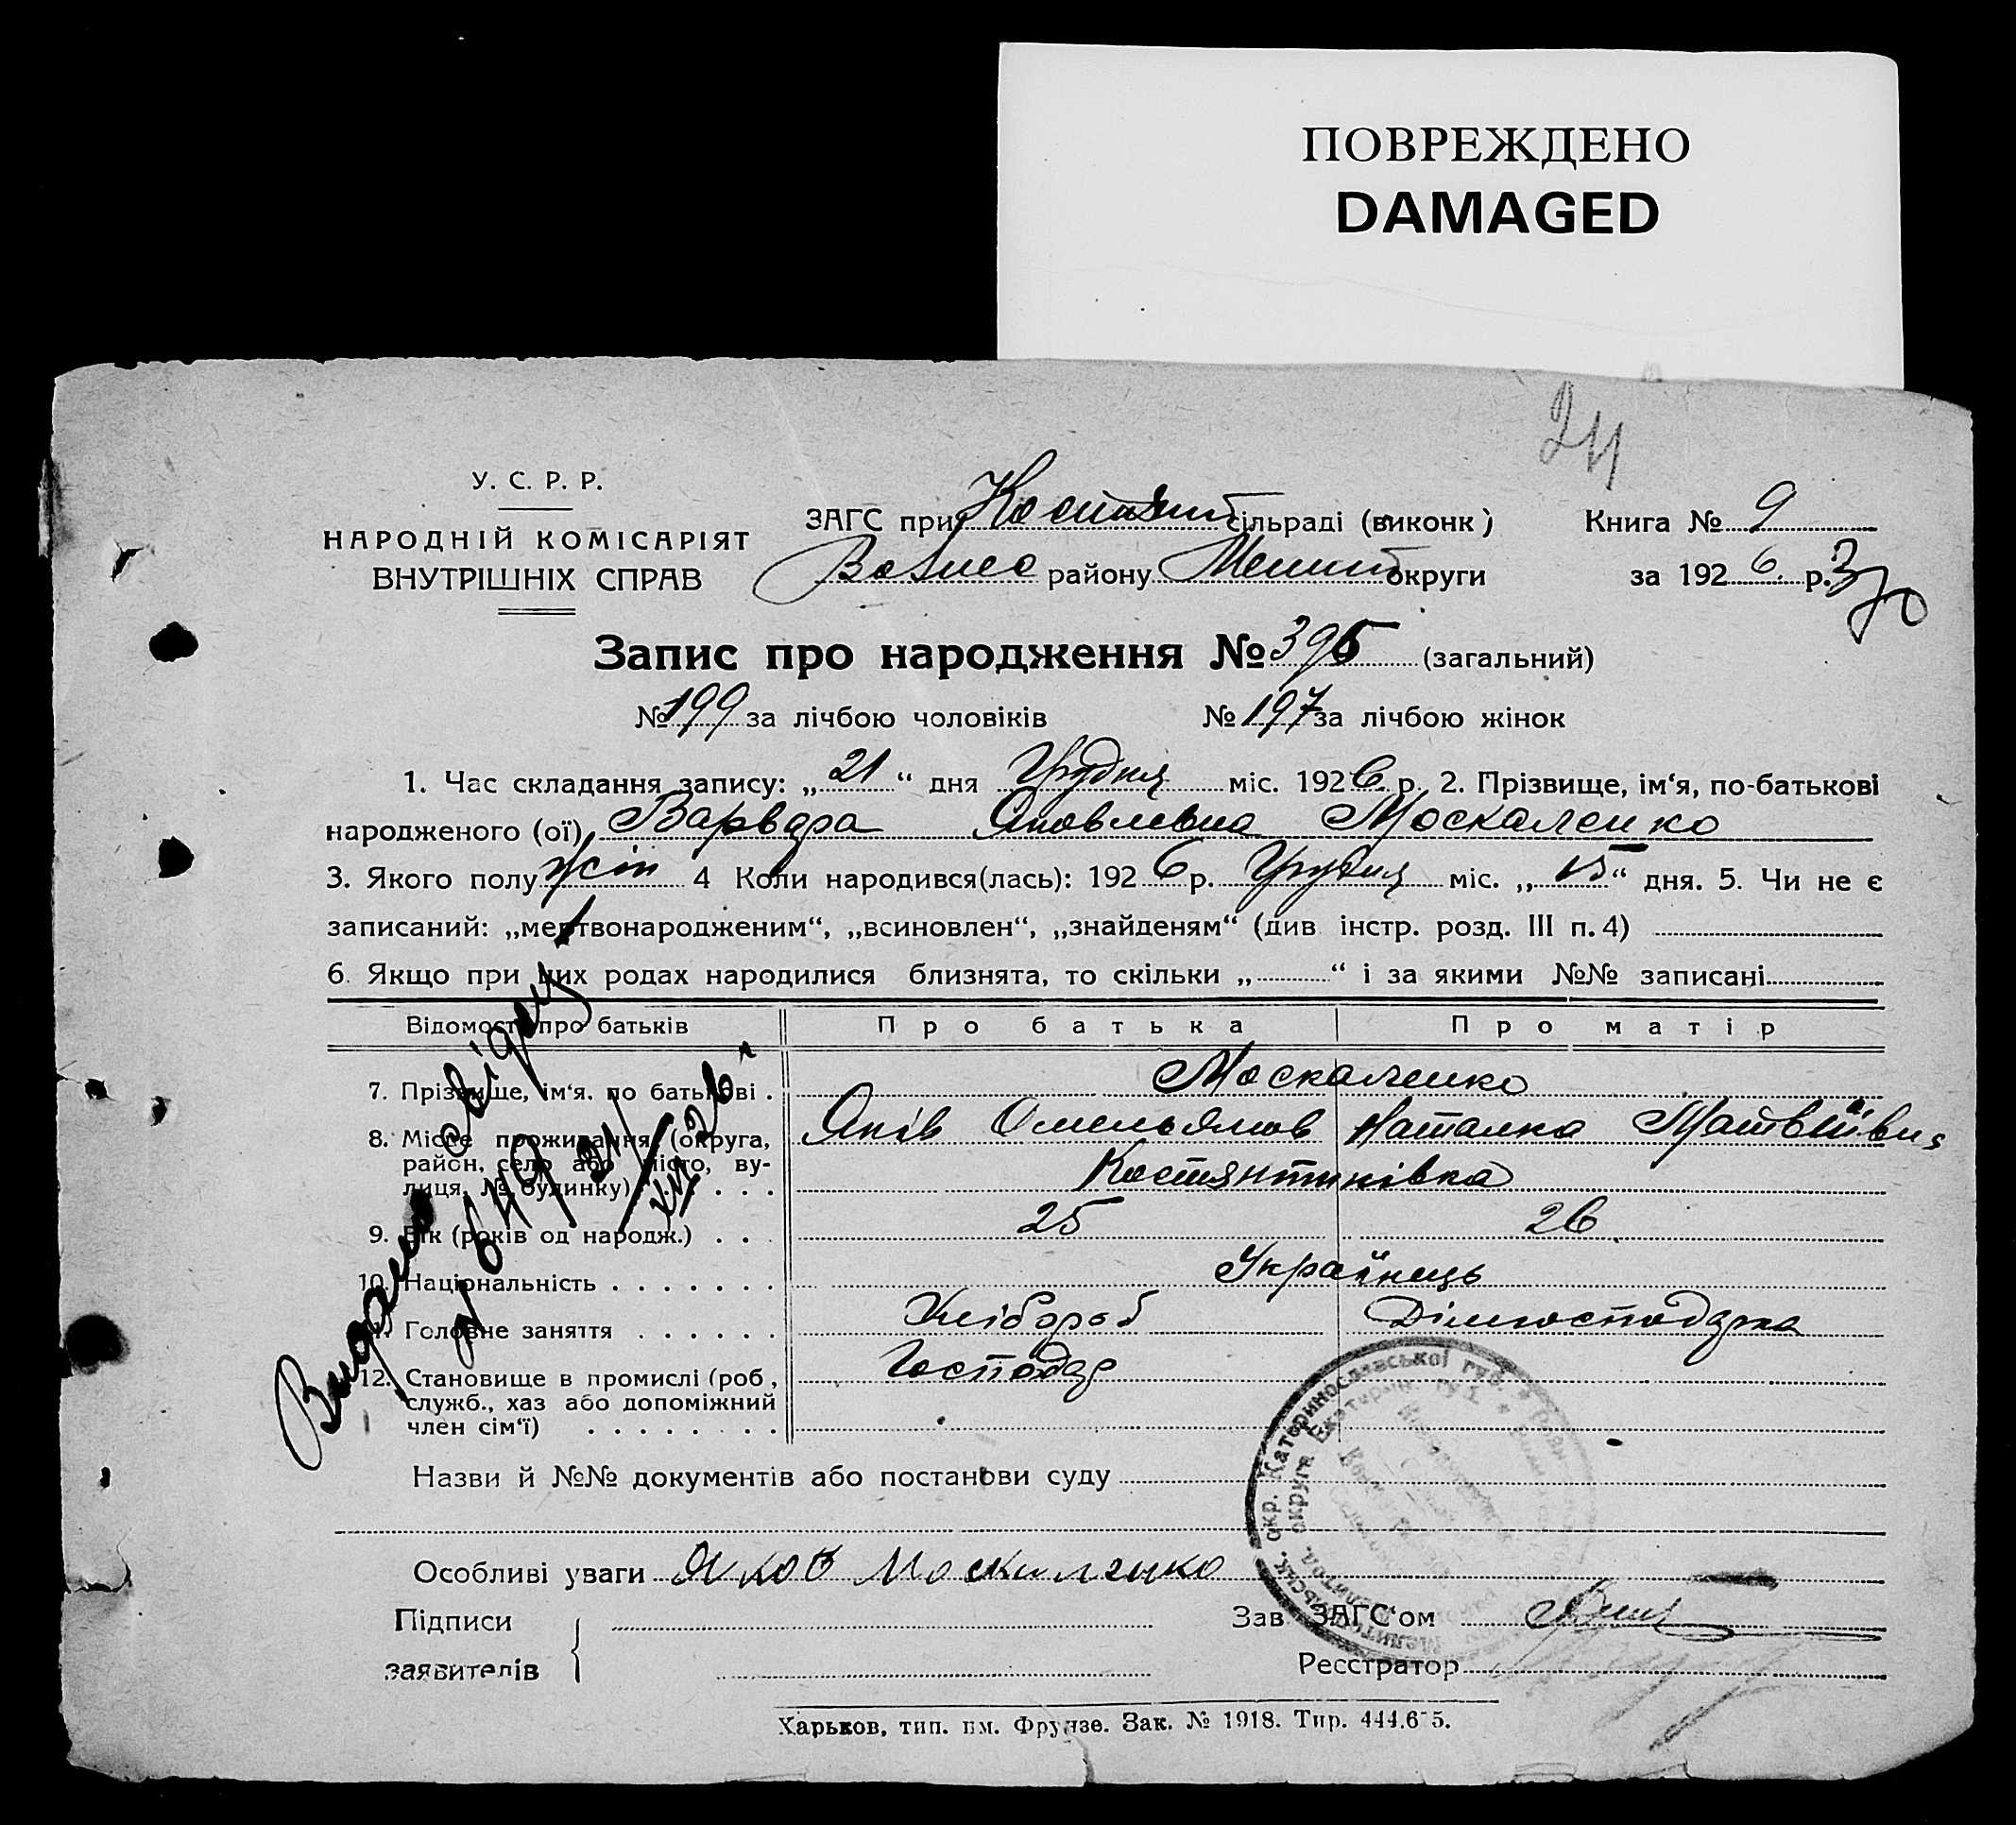 ПОВРЕЖДЕНО
DAMAGED
24
У. С. Р. Р.
НАРОДНІЙ КОМІСАРІЯТ
ВНУТРІШНІХ СПРАВ
ЗАГС при Костянт сільраді (виконк)
Книга № 9
Вознес району Мелит округи
за 1926 р.
Запис про народження № 396 (загальний)
№ 199 за лічбою чоловіків № 197 за лічбою жінок
1. Час складання запису: „21“ дня Грудня міс. 1926 р. 2. Прізвище, ім‘я, по-батькові
народженого (ої) Варвара Яковлевна Москаленко
3. Якого полу жін 4 Коли народився(лась): 1926 р. Грудня міс. „15“ дня. 5. Чи не є
записаний: „мертвонародженим“, „всиновлен“, „знайденям“ (див інстр. розд. III п. 4)
6. Якщо при цих родах народилися близнята, то скільки „ “ і за якими №№ записані
Відомости про батьків Про батька Про матір
7. Прізвище, ім‘я. по батькові . Москаленко
8. Місце проживання (округа, Яків Омельянов Наталка Матвіївна
район, село або місто, ву-
лиця, № будинку) . . . . Костянтинівка
9. Вік (років од народж.) . . . 25 26
10. Національність . . . . . . . Українець
11. Головне заняття . . . . . . Хлібороб Дімгосподарка
12. Становище в промислі (роб, Господар
служб., хаз або допоміжний
член сім‘ї) . . . . . . . .
Видано свідоц
Назви й №№ документів або постанови суду
Особливі уваги Яков Москаленко
Підписи
заявителів
Зав ЗАГС‘ом
Реєстратор
Мелитопільськ. окр. Катеринославської губ.
Мелитоп. округа Екатерин. губ.
Харьков, тип. им. Фрунзе. Зак. № 1918. Тир. 444.675.